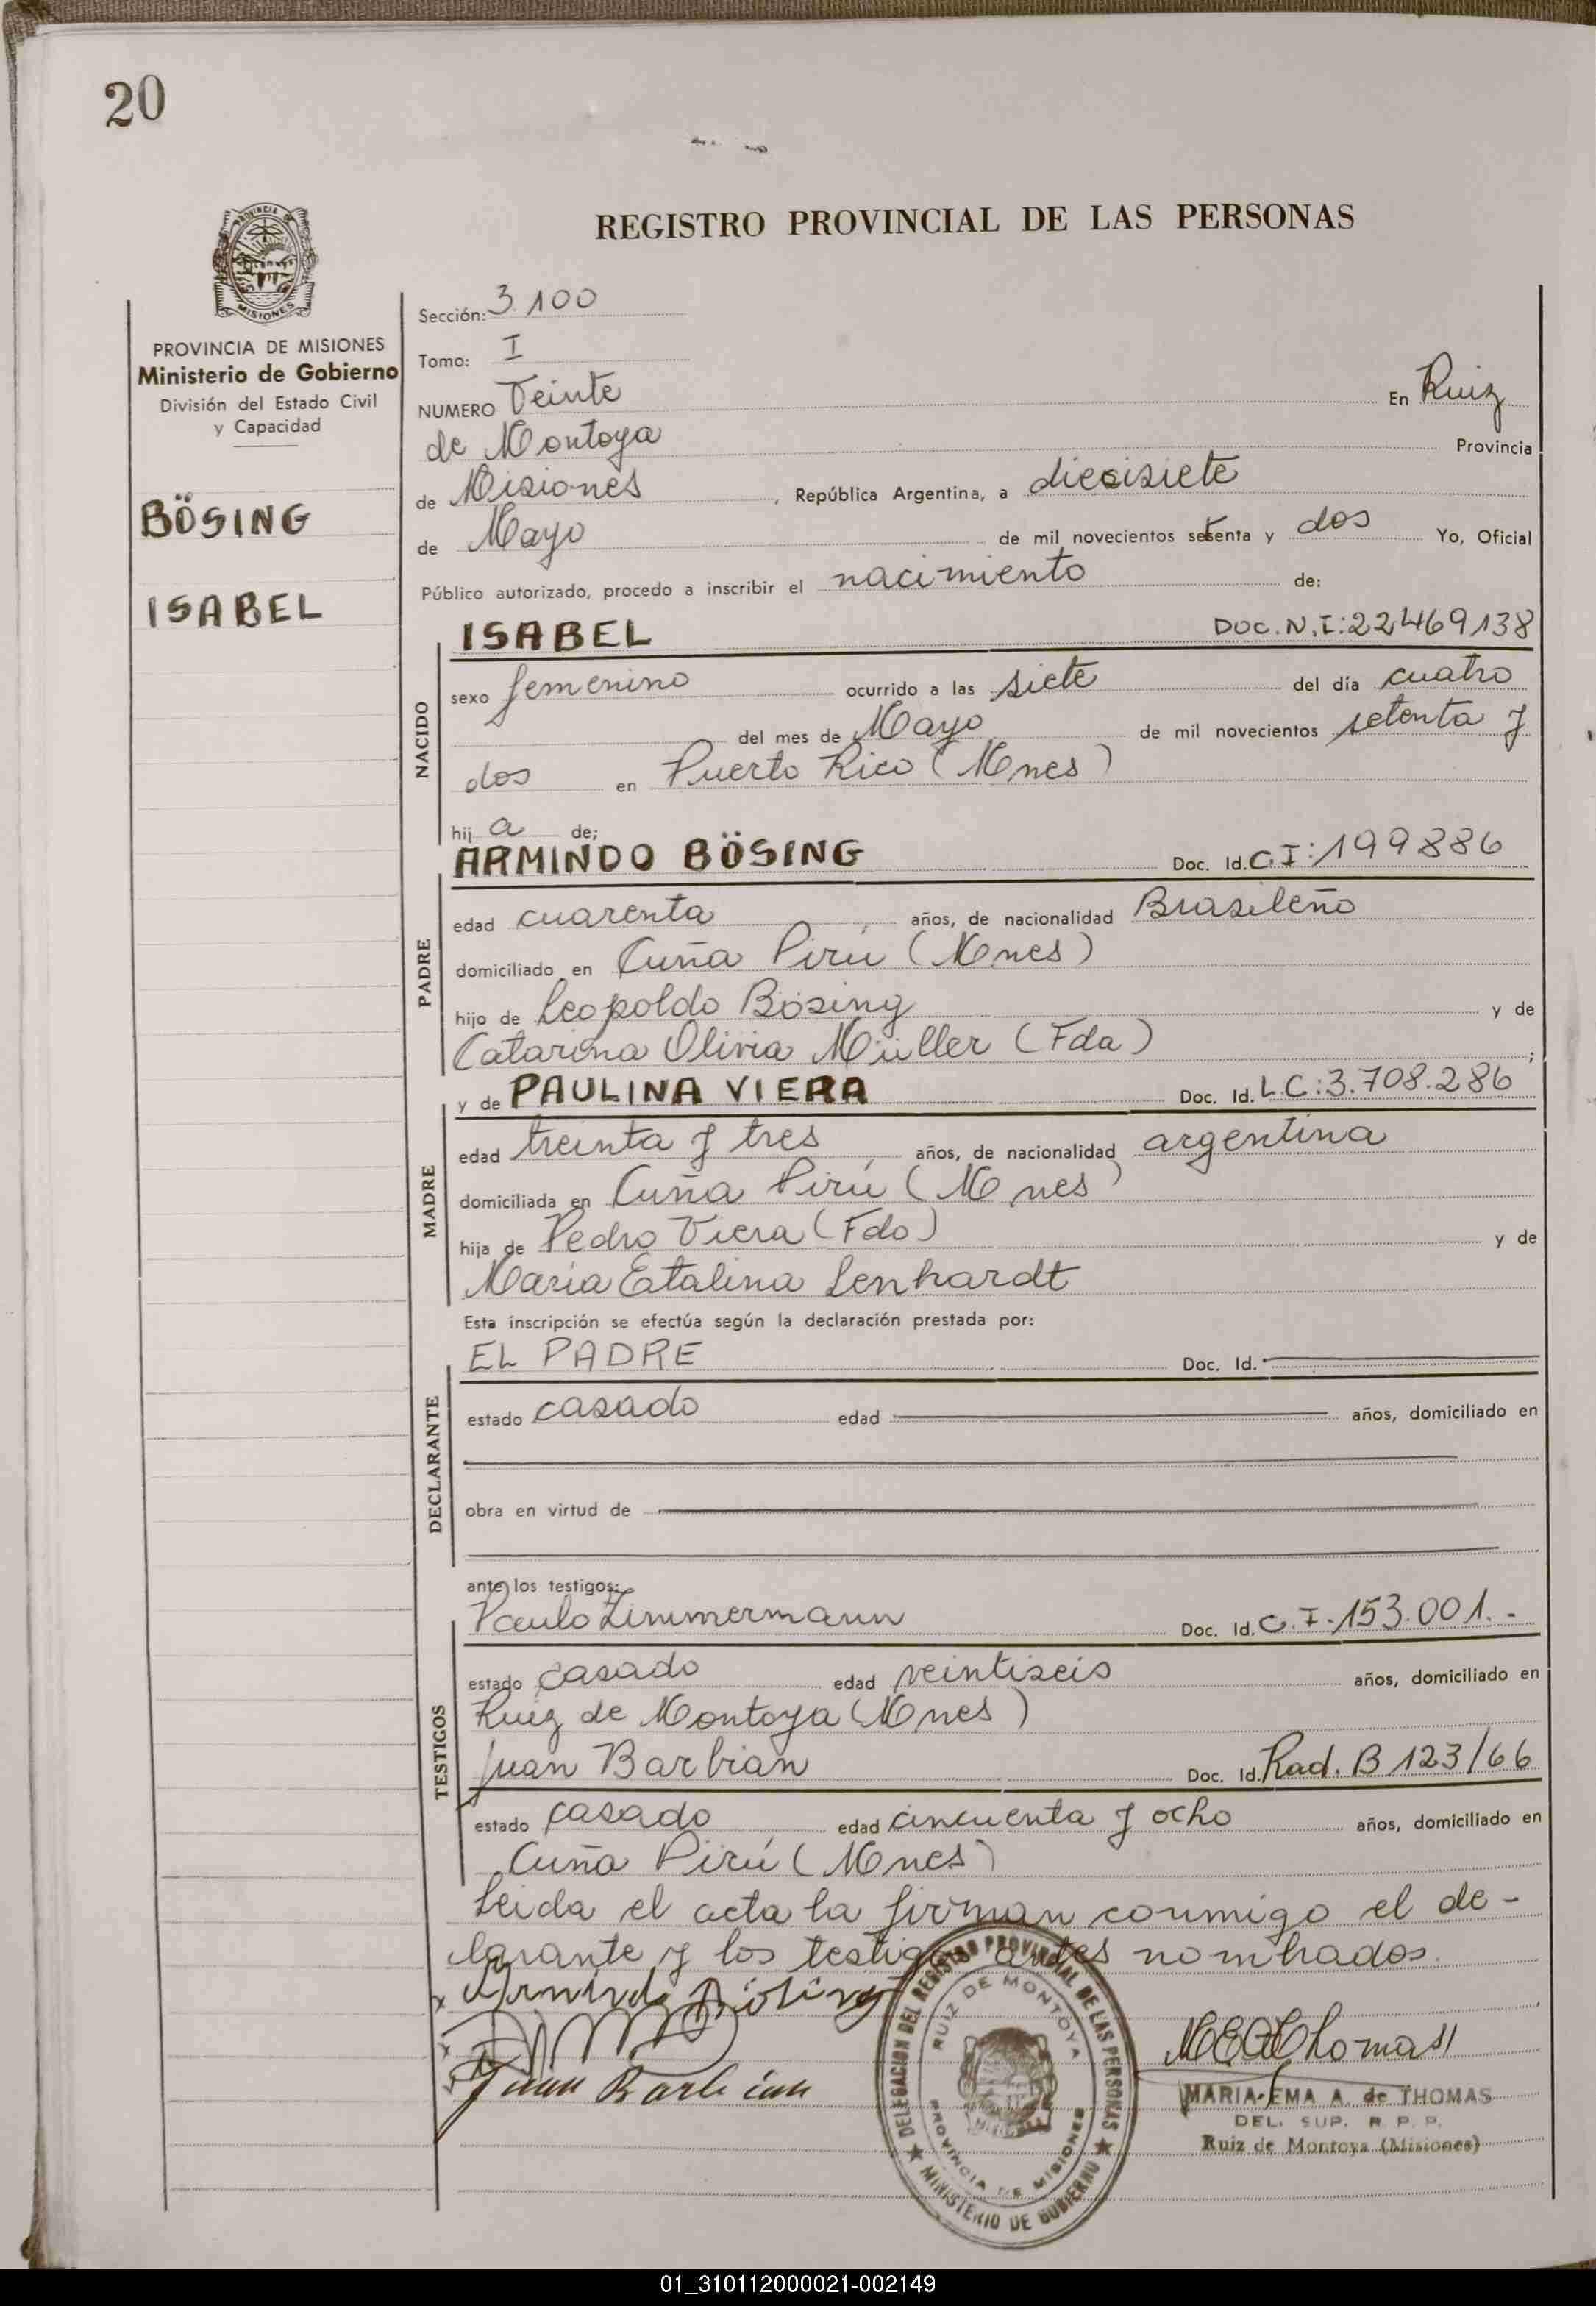 20
REGISTRO PROVINCIAL DE LAS PERSONAS
PROVINCIA DE MISIONES
Ministerio de Gobierno
División del Estado Civil
y Capacidad
BÖSING
ISABEL
Sección: 3.100
Tomo: I
NUMERO Veinte En Ruiz
de Montoya Provincia
de Misiones, República Argentina, a diecisiete
de Mayo de mil novecientos setenta y dos Yo, Oficial
Público autorizado, procedo a inscribir el nacimiento de:
NACIDO
ISABEL DOC.N.I:22469138
sexo femenino ocurrido a las siete del día cuatro
del mes de Mayo de mil novecientos setenta y
dos en Puerto Rico (Mnes)
hij a de;
PADRE
ARMINDO BÖSING Doc. Id. C.I:199886
edad cuarenta, años, de nacionalidad Brasileño
domiciliado en Cuña Pirú (Mnes)
hijo de Leopoldo Bösing y de
Catarina Olivia Müller (Fda);
MADRE
y de PAULINA VIERA Doc. Id. L.C:3.708.286
edad treinta y tres, años, de nacionalidad argentina
domiciliada en Cuña Pirú (Mnes)
hija de Pedro Viera (Fdo) y de
María Catalina Lenhardt
Esta inscripción se efectúa según la declaración prestada por:
DECLARANTE
EL PADRE Doc. Id.
estado casado edad años, domiciliado en
obra en virtud de
ante los testigos:
TESTIGOS
Paulo Zimmermann Doc. Id. C.I.153.001.-
estado casado edad veintiseis años, domiciliado en
Ruiz de Montoya (Mnes)
Juan Barbian Doc. Id. Rad. B 123/66
estado casado edad cincuenta y ocho años, domiciliado en
Cuña Pirú (Mnes)
Leida el acta la firman conmigo el de-
larante y los testigos antes nombrados.
Armindo Bösing
Juan Barbian
DELEGACION DEL REGISTRO PROVINCIAL DE LAS PERSONAS
MINISTERIO DE GOBIERNO
RUIZ DE MONTOYA
PROVINCIA DE MISIONES
MEAThomas
MARIA EMA A. de THOMAS
DEL. SUP. R. P. P.
Ruiz de Montoya (Misiones)
01_310112000021-002149